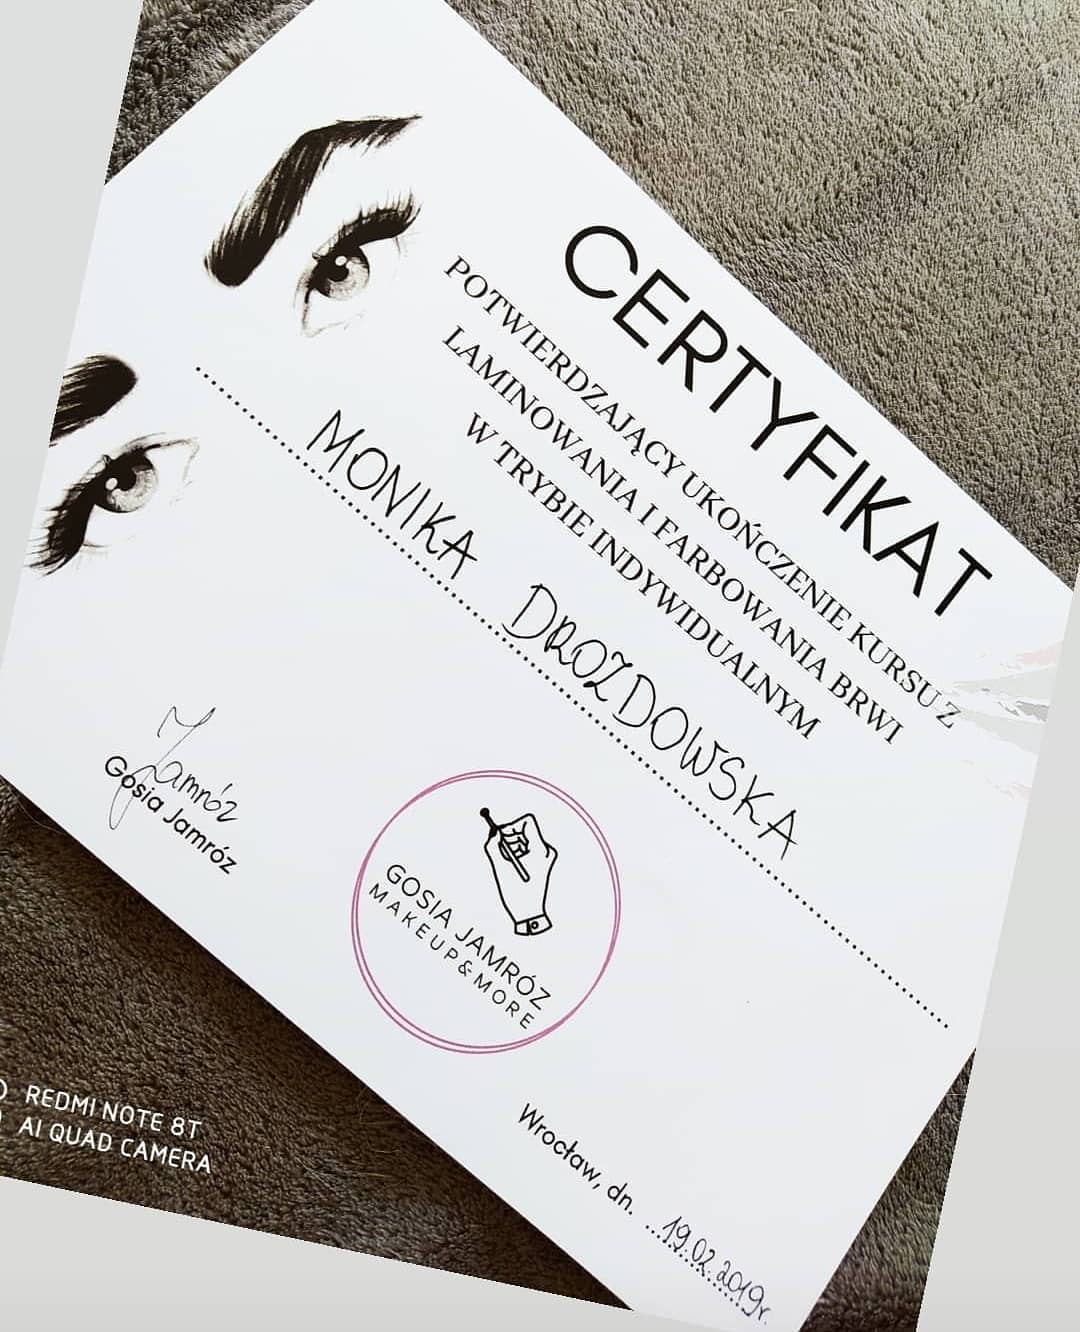 CERTYFIKAT
POTWIERDZAJĄCY UKOŃCZENIE KURSU Z
LAMINOWANIA I FARBOWANIA BRWI
W TRYBIE INDYWIDUALNYM
MONIKA DROZDOWSKA
Jamróz
Gosia Jamróz
GOSIA JAMRÓZ
MAKEUP&MORE
Wrocław, dn. 19.02.2019r.
REDMI NOTE 8T
AI QUAD CAMERA